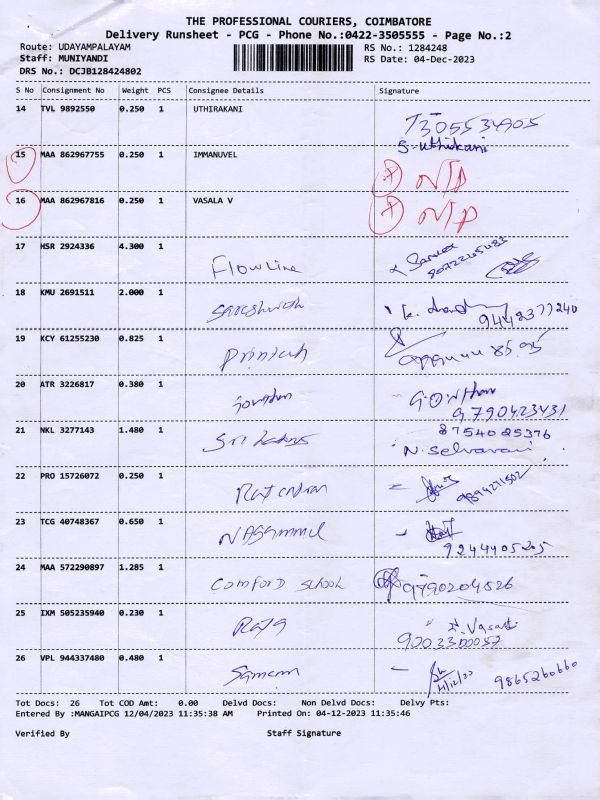 THE PROFESSIONAL COURIERS, COIMBATORE
Delivery Runsheet - PCG - Phone No.:0422-3505555 - Page No.:2
Route: UDAYAMPALAYAM RS No.: 1284248
Staff: MUNIYANDI RS Date: 04-Dec-2023
DRS No.: DCJB128424802
S No Consignment No Weight PCS Consignee Details Signature
14 TVL 9892550 0.250 1 UTHIRAKANI 7305534905
S-uthirkani
15 MAA 862967755 0.250 1 IMMANUVEL N/P
16 MAA 862967816 0.250 1 VASALA V N/P
17 HSR 2924336 4.300 1 Flowline
18 KMU 2691511 2.000 1 9442377240
19 KCY 61255230 0.825 1
20 ATR 3226817 0.380 1 Gowtham
9790423431
21 NKL 3277143 1.480 1 8754025376
N. Selvarani
22 PRO 15726072 0.250 1 9894271502
23 TCG 40748367 0.650 1 NAGAMMAL
9244405205
24 MAA 572290897 1.285 1 Comford School 9790204826
25 IXM 505235940 0.230 1 Raja
9003300057
26 VPL 944337480 0.480 1 9865260660
Tot Docs: 26 Tot COD Amt: 0.00 Delvd Docs: Non Delvd Docs: Delvy Pts:
Entered By :MANGAIPCG 12/04/2023 11:35:38 AM Printed On: 04-12-2023 11:35:46
Verified By Staff Signature